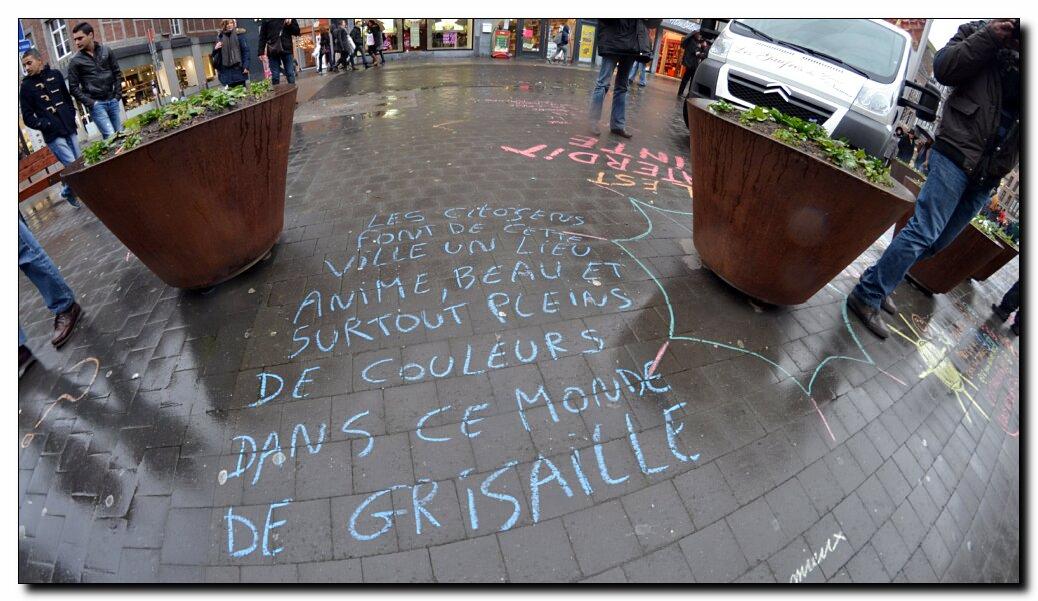 INTERDIT
EST
LES CITOYENS
FONT DE CETTE
VILLE UN LIEU
ANIME, BEAU ET
SURTOUT PLEINS
DE COULEURS
DANS CE MONDE
DE GRISAILLE
mieux